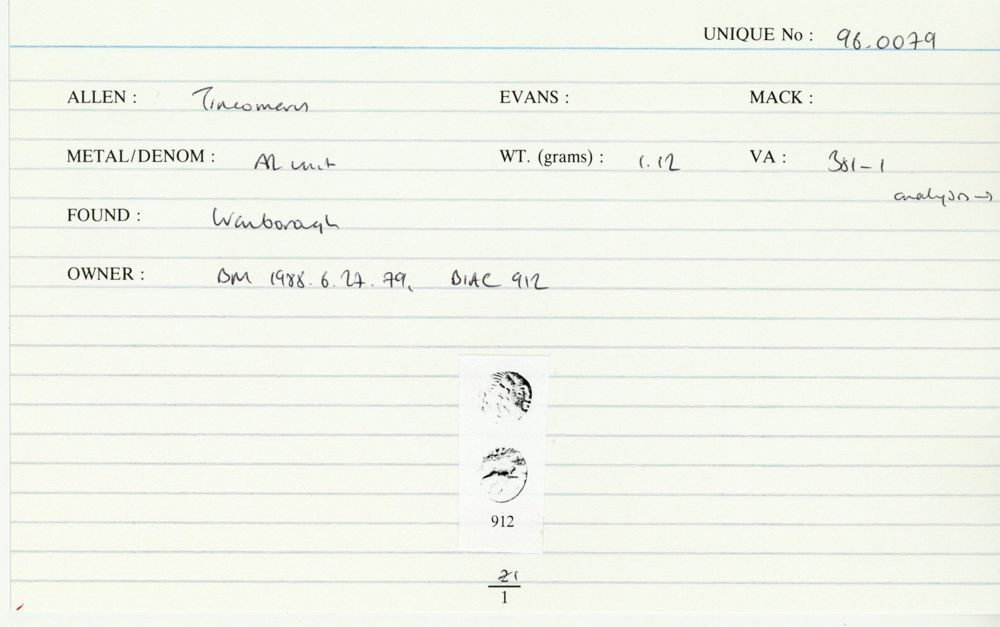 UNIQUE No : 96.0079
ALLEN : Tincomerus EVANS : MACK :
METAL/DENOM : AR unit WT. (grams) : 1.12 VA : 381-1
analysis →
FOUND : Wanborough
OWNER : BM 1988.6.27.79, BIAC 912
912
21
1